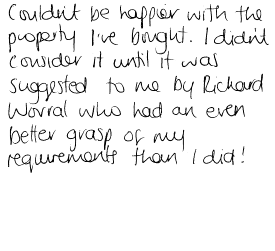 Couldn't be happier with the
property I've bought. I didn't
consider it until it was
suggested to me by Richard
Worral who had an even
better grasp of my
requirements than I did!